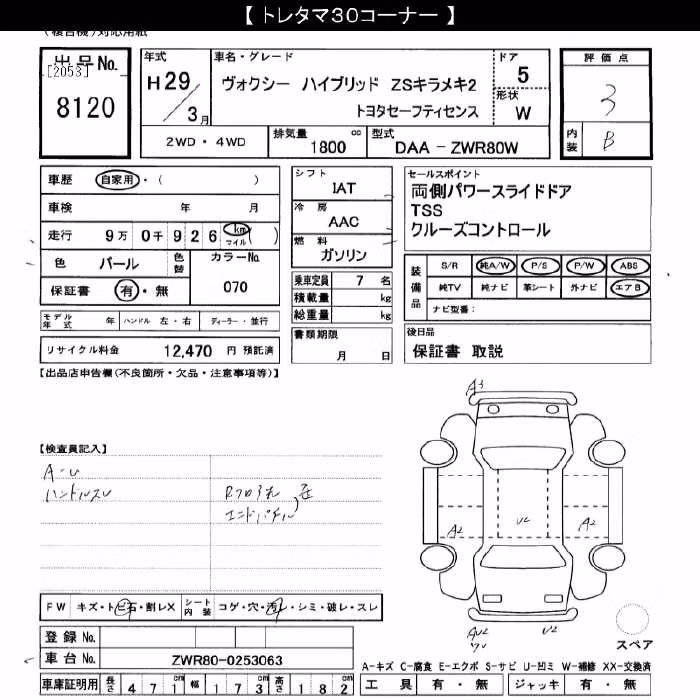 【 トレタマ30コーナー 】
(複合機)対応用紙
出品No.
[2053]
8120
年式
H29/3月
車名・グレード
ヴォクシー ハイブリッド ZSキラメキ2
トヨタセーフティセンス
ドア
5
形状
W
評価点
3
内装
B
2WD・4WD
排気量
1800 cc
型式
DAA - ZWR80W
車歴 自家用・( )
車検 年 月
走行 9万 0千 9 2 6 km マイル ( )
色 パール 色替
カラーNo.
070
保証書 有・無
モデル年式 年 ハンドル 左・右 ディーラー・並行
リサイクル料金 12,470 円 預託済
シフト
IAT
冷房
AAC
燃料
ガソリン
乗車定員 7 名
積載量 kg
総重量 kg
書類期限
月 日
セールスポイント
両側パワースライドドア
TSS
クルーズコントロール
装備品
S/R 純A/W P/S P/W ABS
純TV 純ナビ 革シート 外ナビ エアB
ナビ型番:
後日品
保証書 取説
【出品店申告欄(不良箇所・欠品・注意事項等)】
【検査員記入】
A-U
ハンドルスレ
エンドパネル
A3
A2
U2
A2
AU2
U2
FW キズ・トビ石・割レX シート内装 コゲ・穴・汚レ・シミ・破レ・スレ
登録 No.
車台 No. ZWR80-0253063
車庫証明用 長さ 4 7 1 cm 幅 1 7 3 cm 高さ 1 8 2 cm
スペア
A-キズ C-腐食 E-エクボ S-サビ U-凹ミ W-補修 XX-交換済
工具 有・無 ジャッキ 有・無